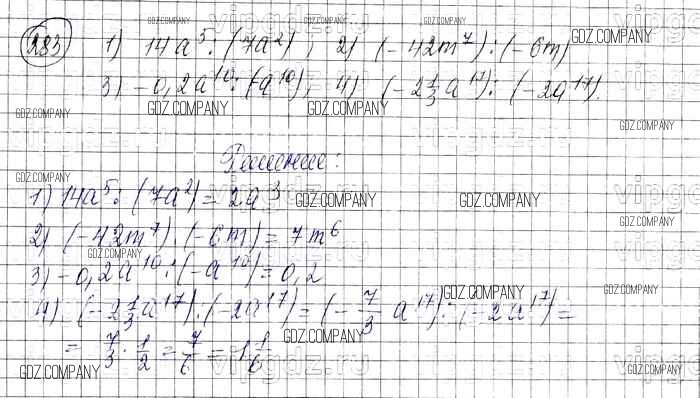 283
1) 14a⁵ : (7a²); 2) (-42m⁷) : (-6m)
3) -0,2a¹⁰ : (-a¹⁰); 4) (-2 1/3 a¹⁷) : (-2a¹⁷).
Решение:
1) 14a⁵ : (7a²) = 2a³
2) (-42m⁷) : (-6m) = 7m⁶
3) -0,2a¹⁰ : (-a¹⁰) = 0,2
4) (-2 1/3 a¹⁷) : (-2a¹⁷) = (- 7/3 a¹⁷) : (-2a¹⁷) =
= 7/3 · 1/2 = 7/6 = 1 1/6
GDZ.COMPANY
vipgdz.ru